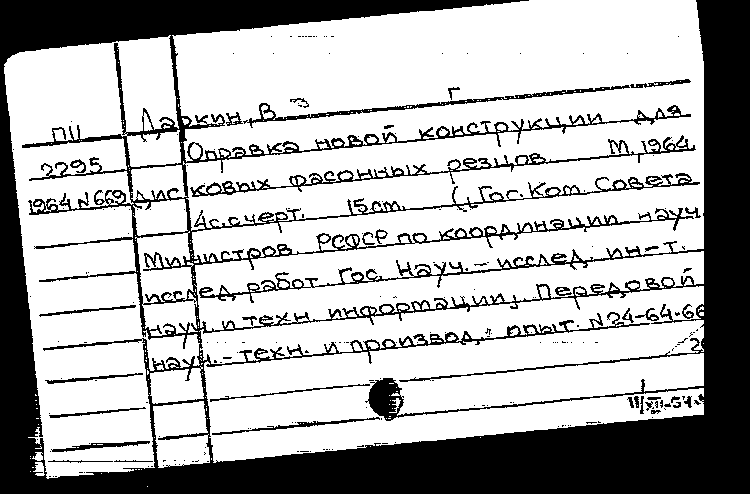 ПЦ Даркин, В. З Г
2295 Оправка новой конструкции для
1964 N 669 дисковых фасонных резцов. М., 1964.
4с. с черт. 15 см. (Гос. Ком. Совета
Министров РСФСР по координации науч.
исслед. работ. Гос. Науч.-исслед. ин-т.
науч. и техн. информации. Передовой
науч.-техн. и производ. опыт. N 24-64-66